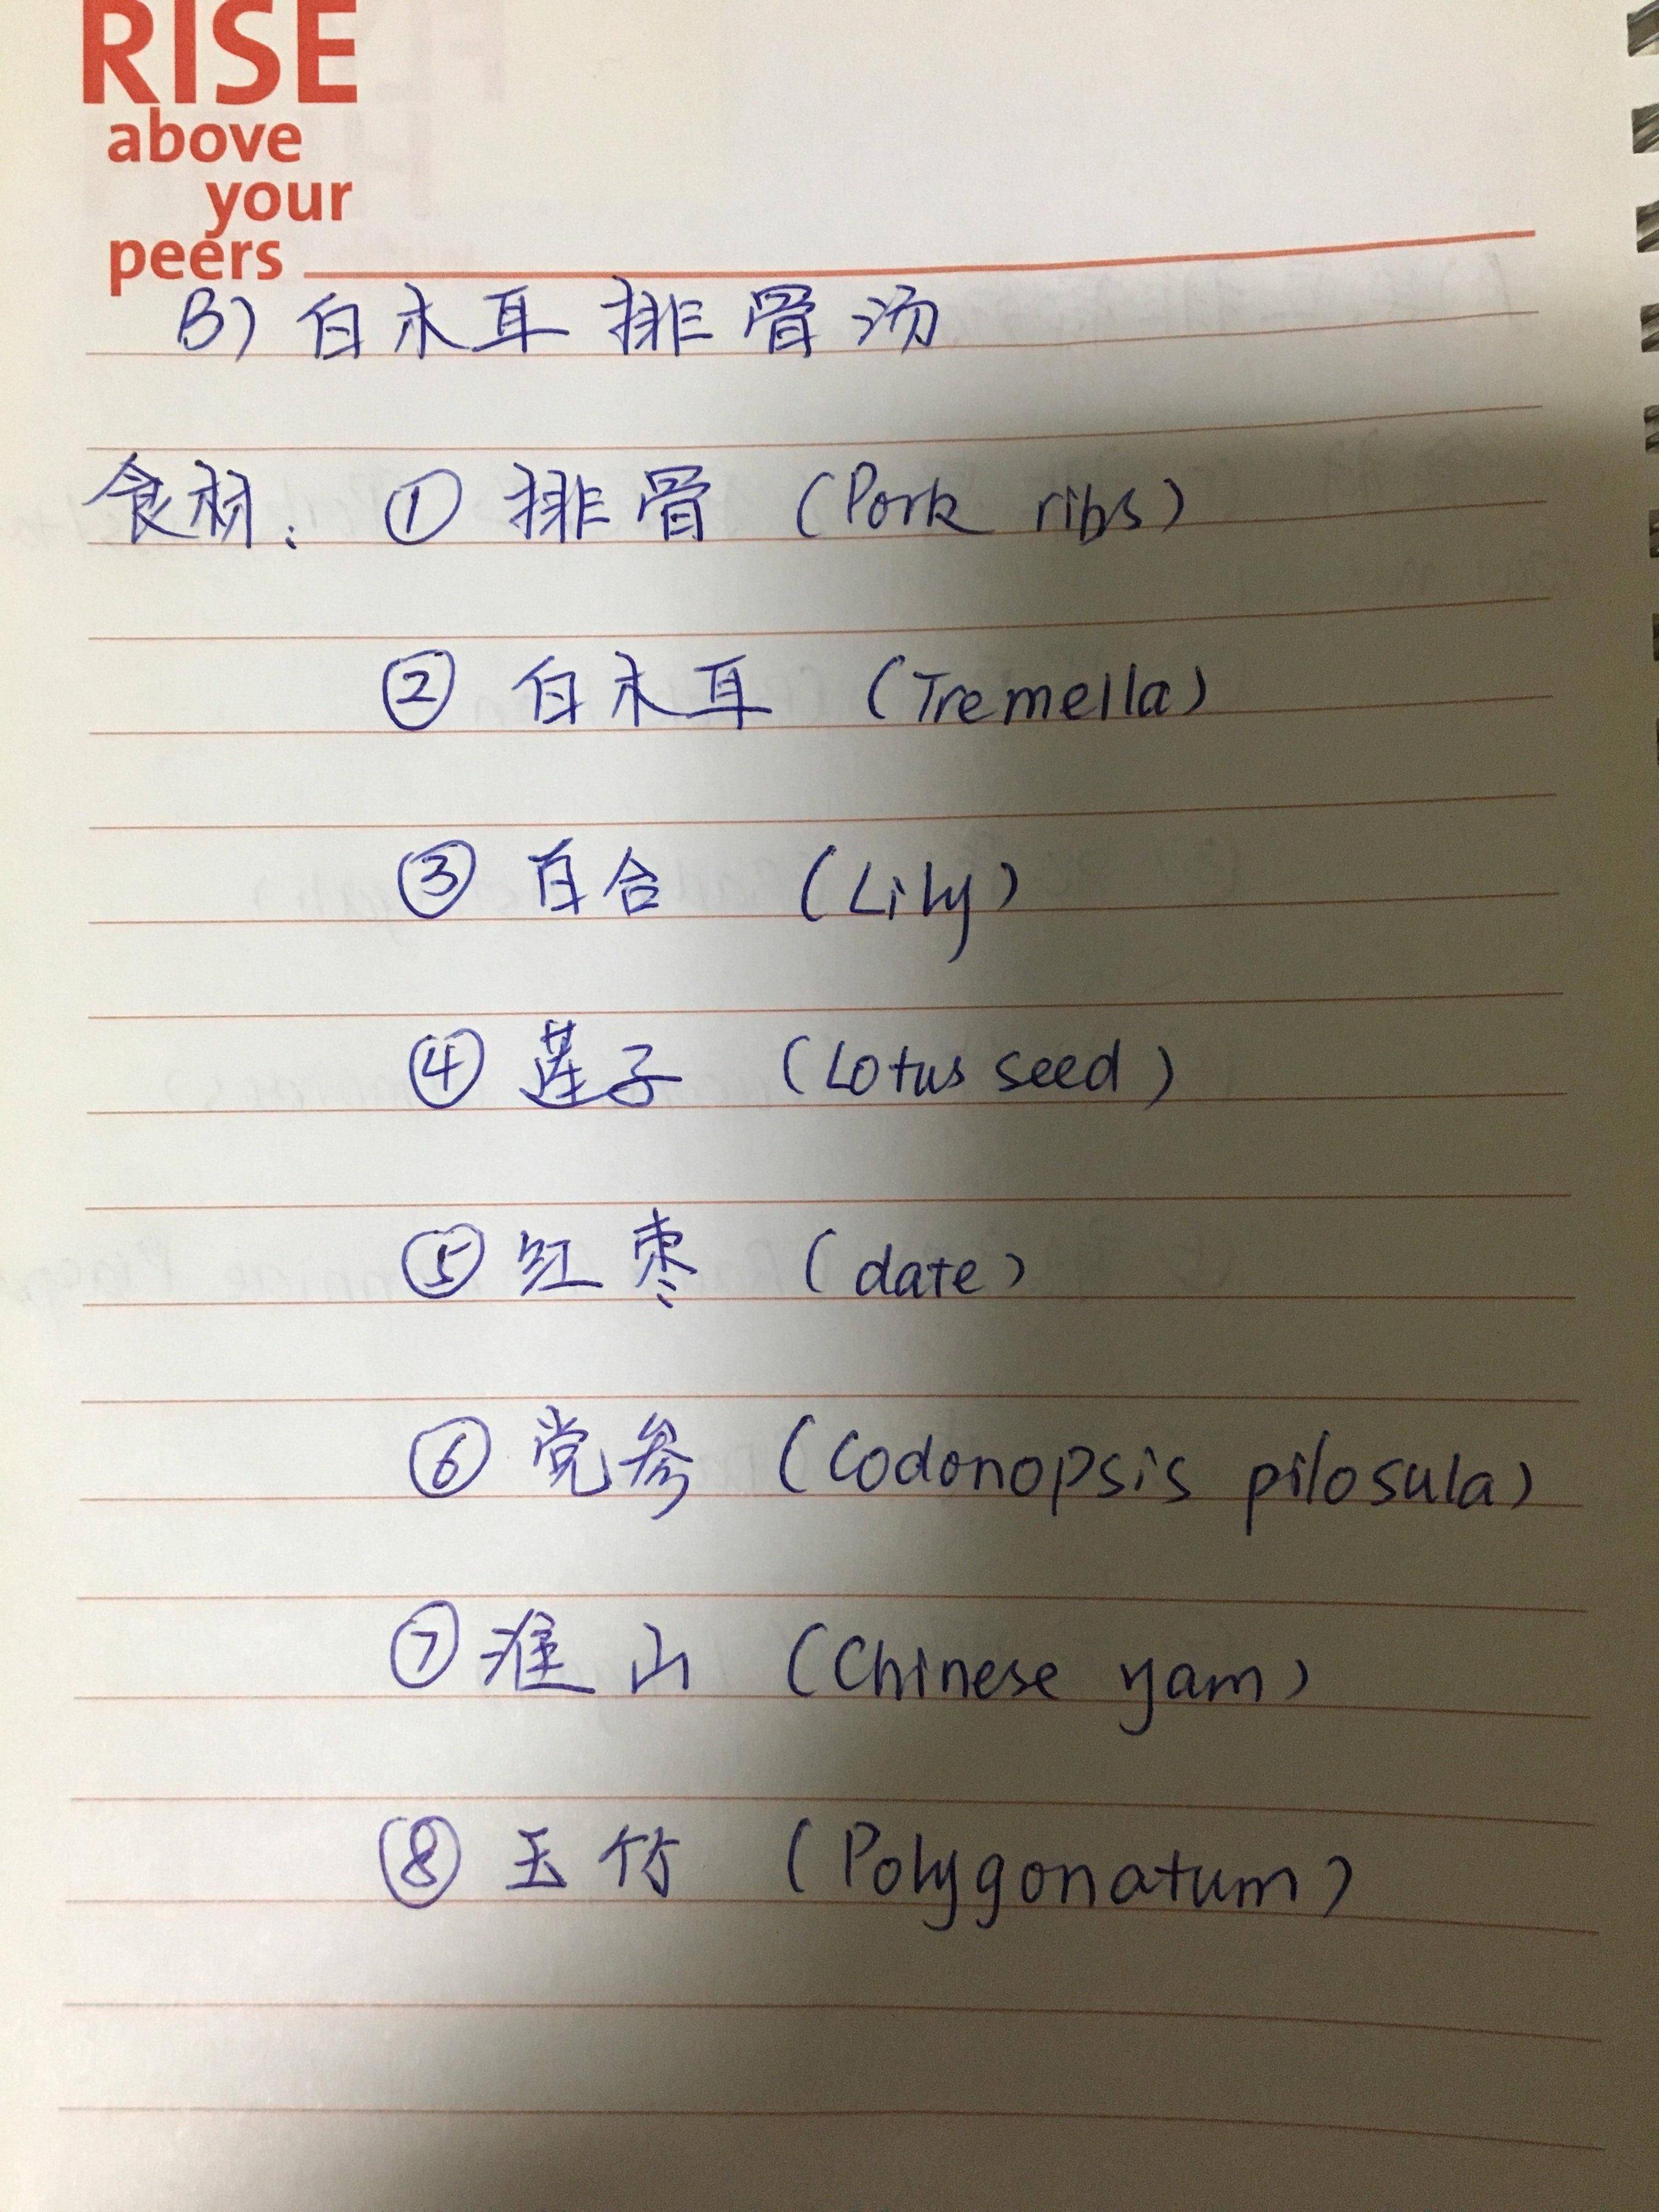 RISE
above
your
peers
B) 白木耳排骨汤
食材: ① 排骨 (Pork ribs)
② 白木耳 (Tremella)
③ 百合 (Lily)
④ 莲子 (Lotus seed)
⑤ 红枣 (date)
⑥ 党参 (Codonopsis pilosula)
⑦ 淮山 (Chinese yam)
⑧ 玉竹 (Polygonatum)